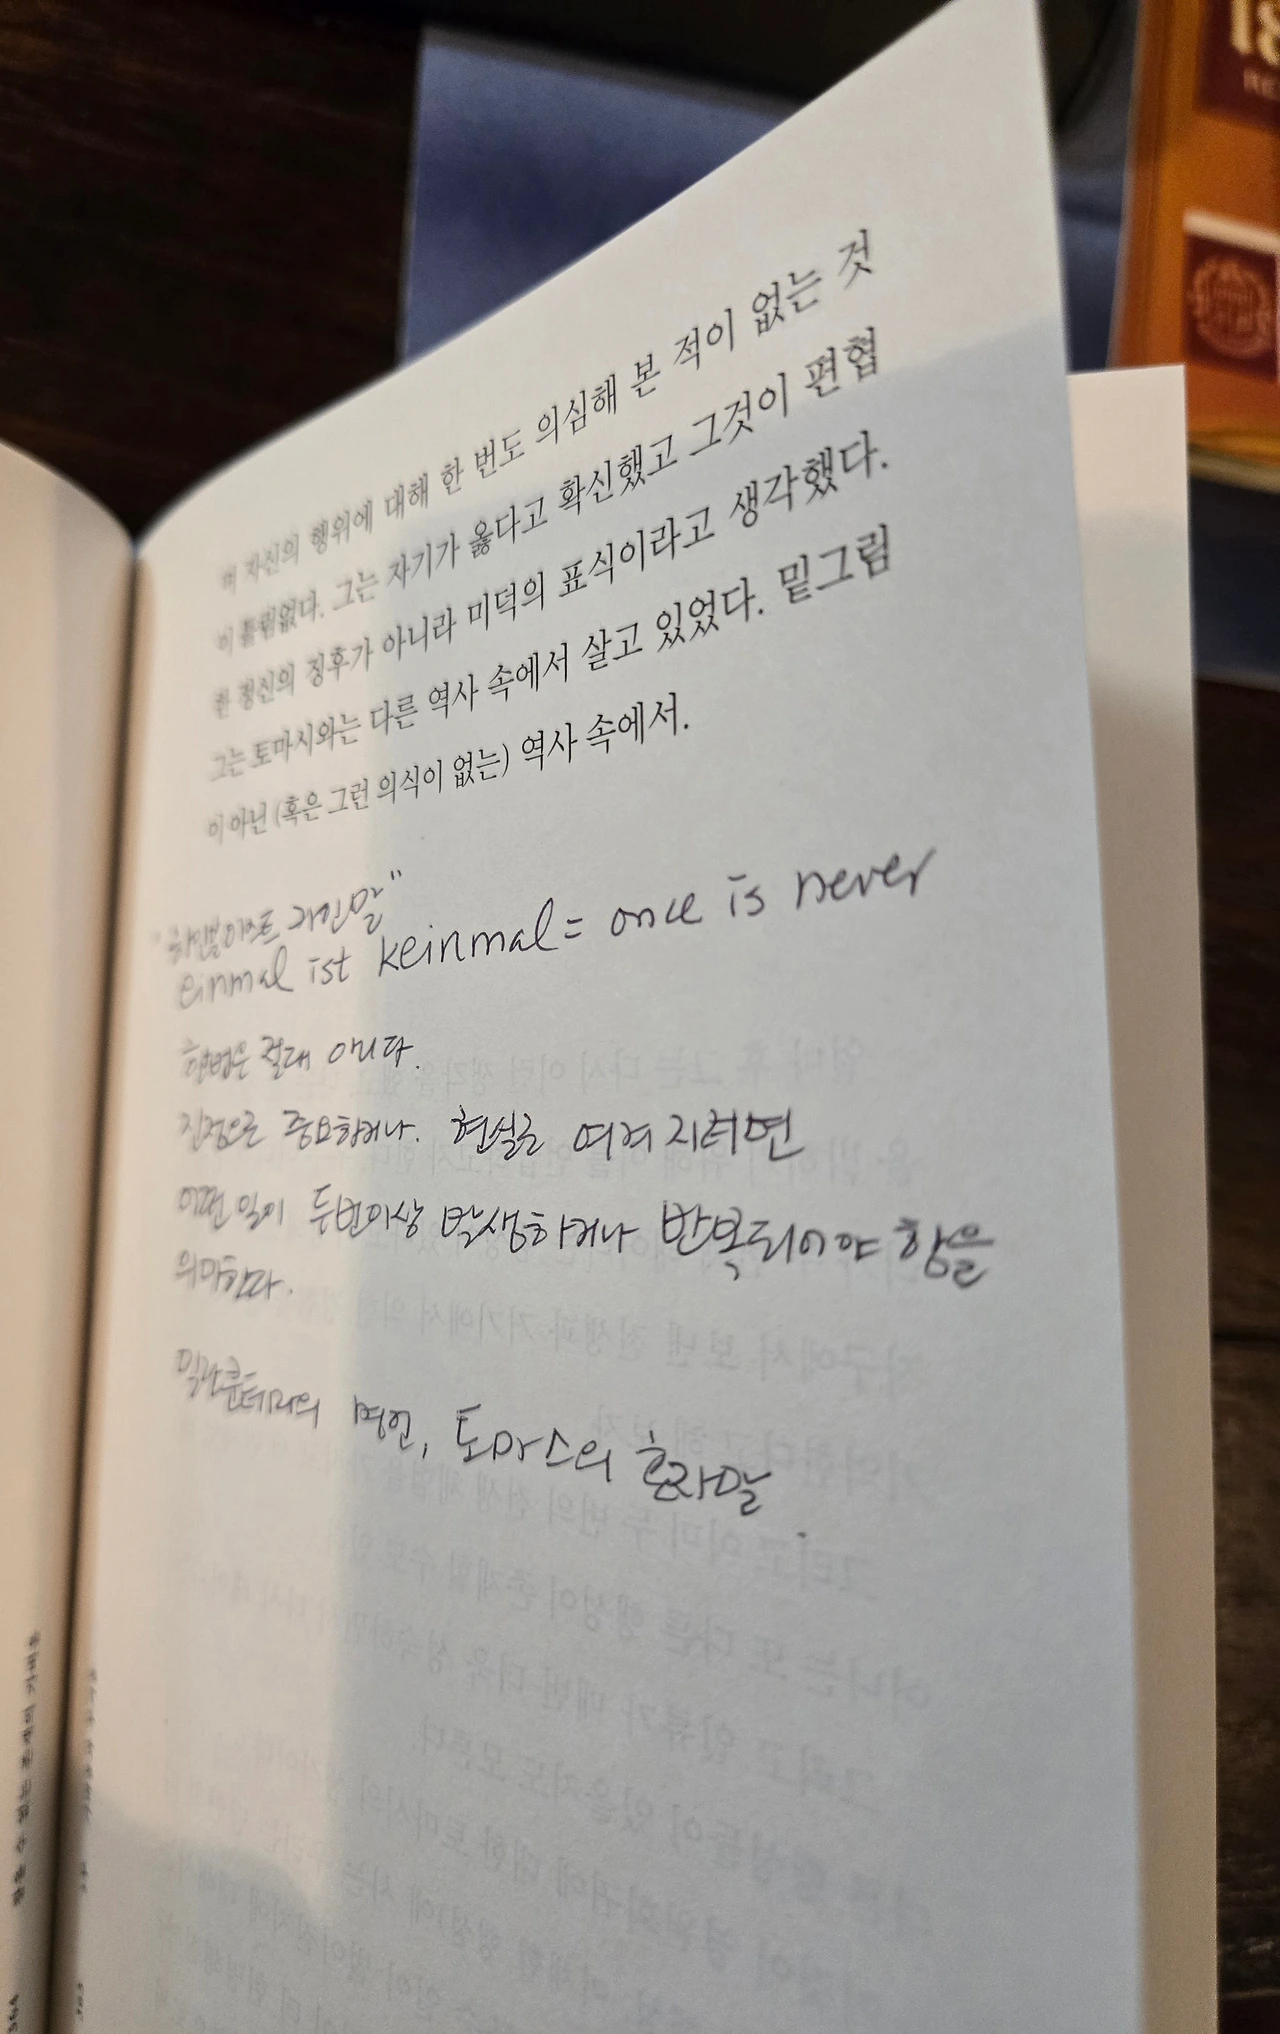 며 자신의 행위에 대해 한 번도 의심해 본 적이 없는 것
이 틀림없다. 그는 자기가 옳다고 확신했고 그것이 편협
한 정신의 징후가 아니라 미덕의 표식이라고 생각했다.
그는 토마시와는 다른 역사 속에서 살고 있었다. 밑그림
이 아닌 (혹은 그런 의식이 없는) 역사 속에서.
einmal ist keinmal = once is never
한번은 절대 아니다.
진정으로 중요하거나. 현실로 여겨지려면
어떤 일이 두번이상 발생하거나 반복되어야 함을
의미한다.
밀란쿤데라의 명언, 토마스의 혼자말.
참을 수 없는 존재의 가벼움
564